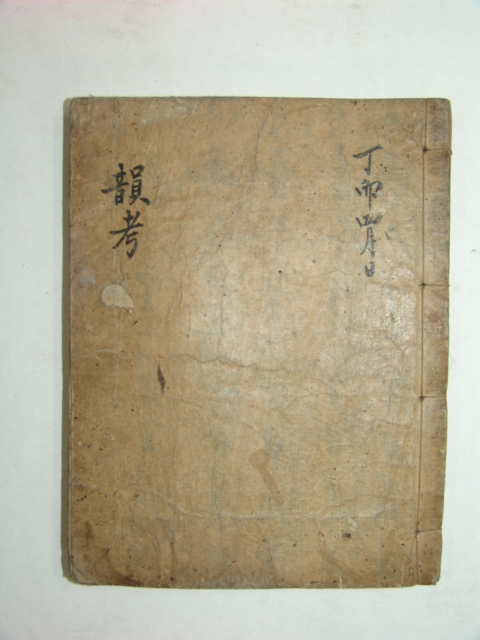 丁卯四月日
韻考